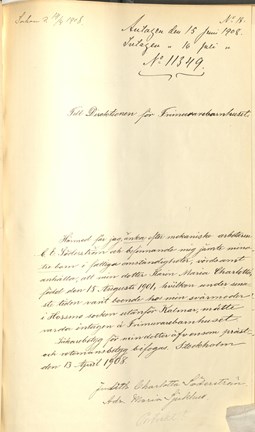 N: 18.
Antagen den 15 Juni 1908.
Intagen " 16 Juli "
No 11349.
Till Direktionen för Frimurarebarnhuset.
Härmed får jag, änka efter mekaniske arbetaren
C. E. Söderström och befinnande mig jämte mina
tre barn i fattiga omständigheter, vördsamt
anhålla, att min dotter Karin Maria Charlotta,
född den 18 Augusti 1901, hvilken under sena-
ste tiden varit boende hos min svärmoder
i Hossmo socken utanför Kalmar, måtte
varda intagen å Frimurarebarnhuset.
Läkarebetyg för min dotter äfvensom präst-
och rotemansbetyg bifogas. Stockholm
den 13 April 1908.
Judith Charlotta Söderström
Ada Maria